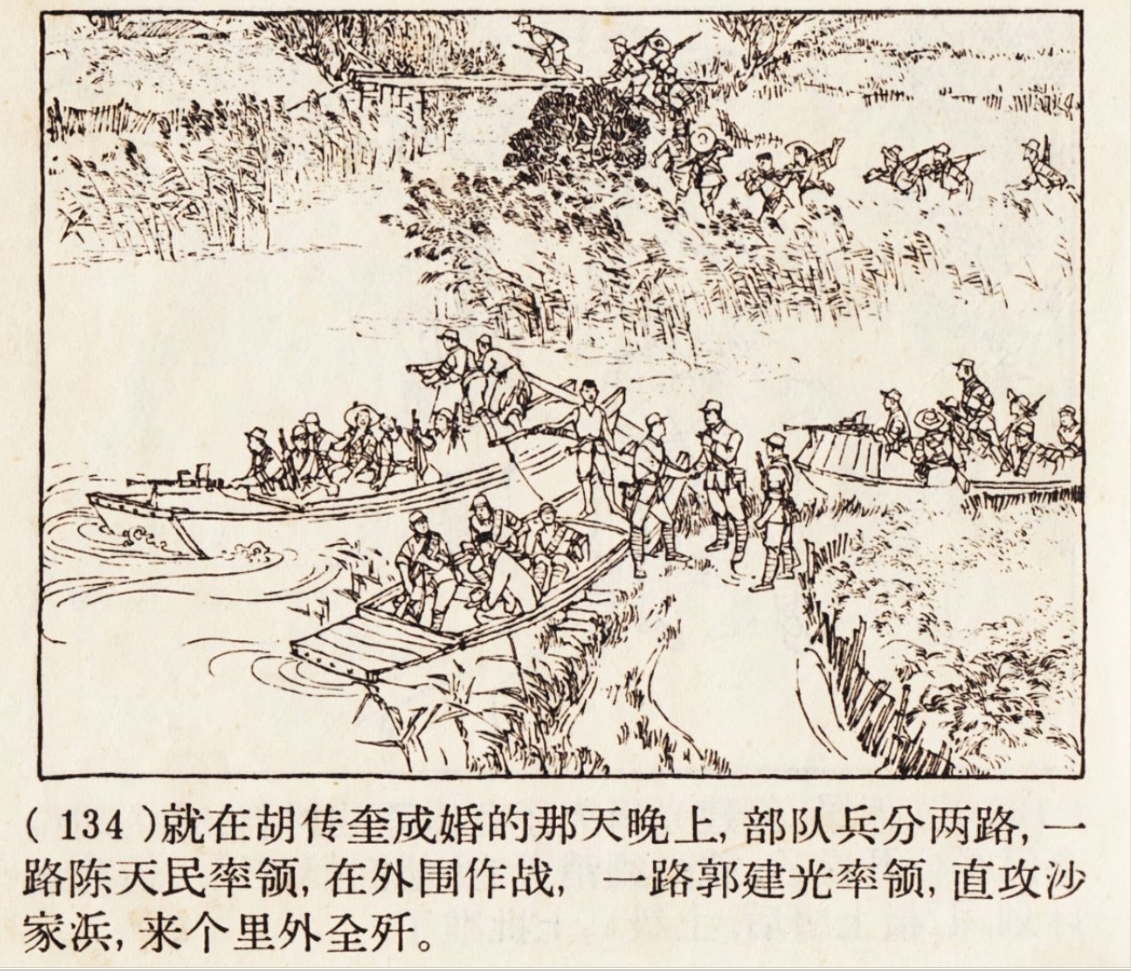 (134)就在胡传奎成婚的那天晚上,部队兵分两路,一
路陈天民率领,在外围作战, 一路郭建光率领,直攻沙
家浜,来个里外全歼。